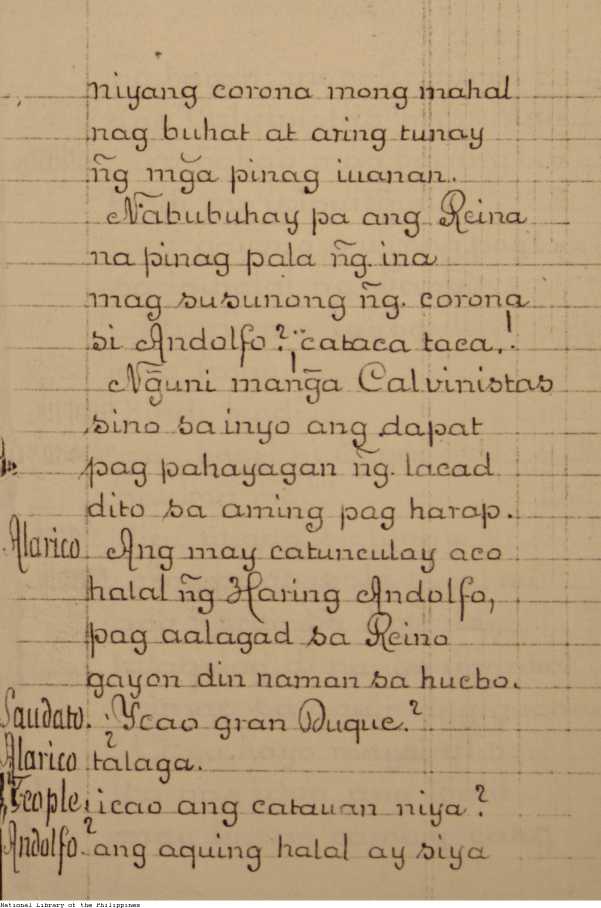 niyang corona mong mahal
nag buhat at aring tunay
ñg mg̃a pinag iuanan.
Nãbubuhay pa ang Reina
na pinag pala ñg. ina
mag susunong ñg. corona
si Andolfo? ¡cataca taca,!
Ng̃uni mang̃a Calvinistas
sino sa inyo ang dapat
pag pahayagan ñg. lacad
dito sa aming pag harap.
Alarico. Ang may catunculay aco
halal ñg Haring Andolfo,
pag aalagad sa Reino
gayon din naman sa hucbo.
Saudato. Ycao gran Duque?
Alarico talaga.
Teople. icao ang catauan niya?
Andolfo. ang aquing halal ay siya
National Library of the Philippines